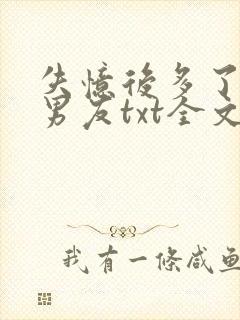 失憶後多了
男友txt全文
我有一條咸鱼